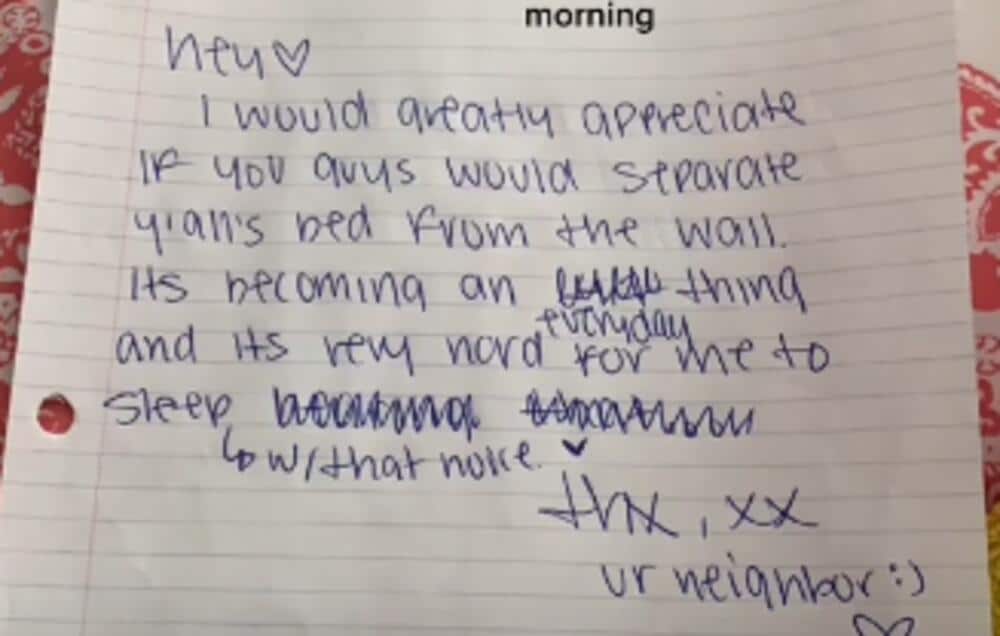 morning
hey♡
I would greatly appreciate
if you guys would separate
y'all's bed from the wall.
Its becoming an thing
everyday
and its very hard for me to
sleep
↳ w/that noise.
thx, xx
ur neighbor :)
♡